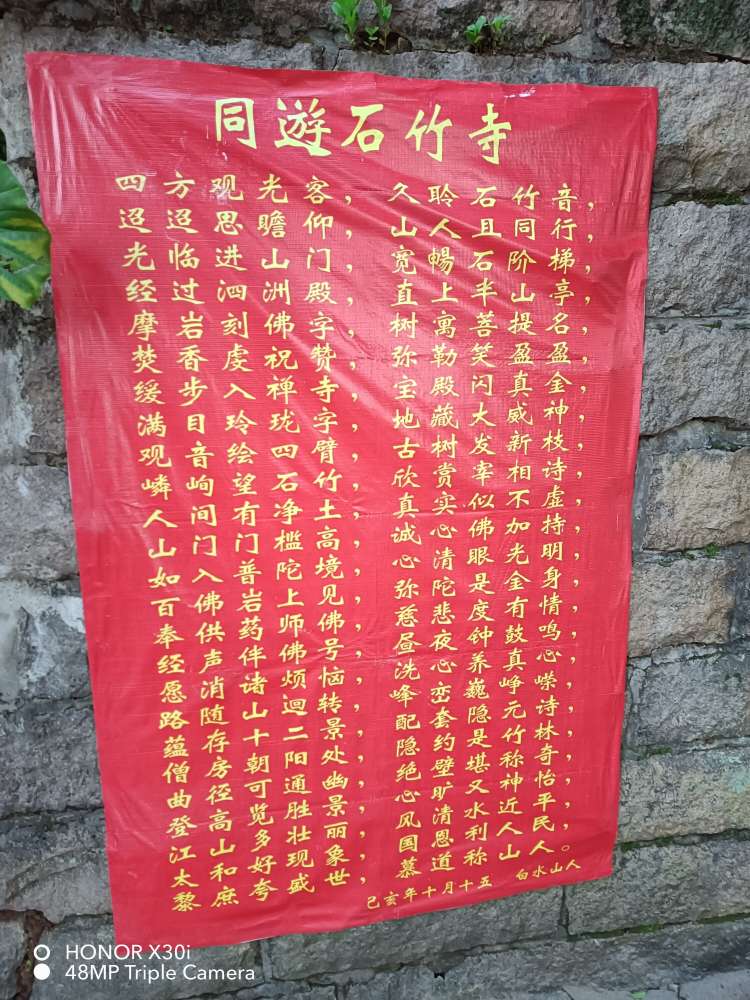 同遊石竹寺
四方观光客，久聆石竹音，
迢迢思瞻仰，山人且同行，
光临进山门，宽暢石阶梯，
经过泗洲殿，直上半山亭，
摩岩刻佛字，树寓菩提名，
焚香虔祝赞，弥勒笑盈盈，
缓步入禅寺，宝殿闪真金，
满目玲珑字，地藏大威神，
观音绘四臂，古树发新枝，
嶙峋望石竹，欣赏宰相诗，
人间有净土，真实似不虚，
山门门槛高，诚心佛加持，
如入普陀境，心清眼光明，
百佛岩上见，弥陀是金身，
奉供药师佛，慈悲度有情，
经声伴佛号，昼夜钟鼓鸣，
愿消诸烦恼，洗心养真心，
路随山迴转，峰峦巍峥嵘，
蕴存十二景，配套隐元诗，
僧房朝阳处，隐约是竹林，
曲径可通幽，绝壁堪称奇，
登高览胜景，心旷又神怡，
江山多壮丽，风清水近平，
太和好现象，国恩利人民，
黎庶夸盛世，慕道称山人。
己亥年十月十五 白水山人
HONOR X30i
48MP Triple Camera